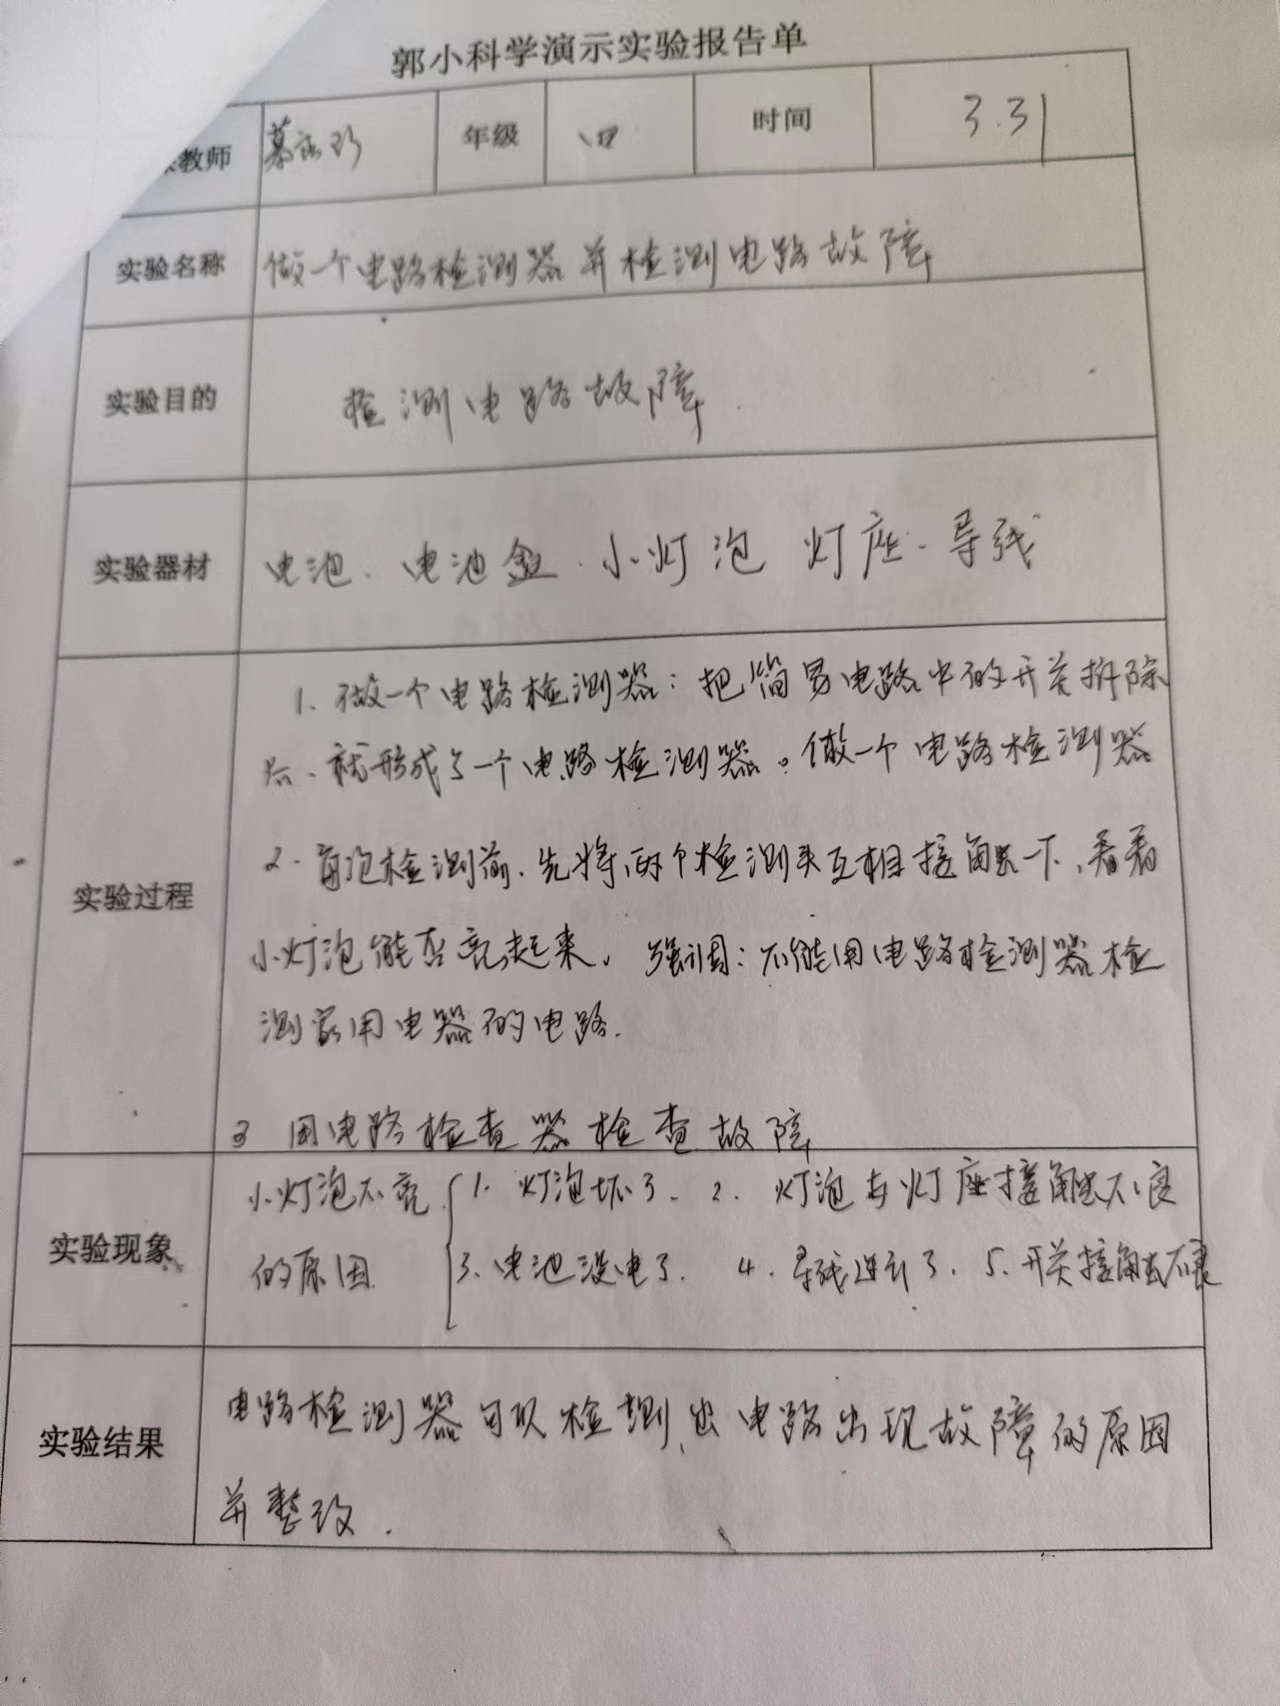 郭小科学演示实验报告单
教师 年级 四 时间 3.31
实验名称 做一个电路检测器并检测电路故障
实验目的 检测电路故障.
实验器材 电池、电池盒、小灯泡 灯座、导线
实验过程
1、做一个电路检测器：把简易电路中的开关拆除
后、就形成了一个电路检测器。做一个电路检测器
2. 检测前、先将两个检测头互相接触一下、看看
小灯泡能否亮起来。强调：不能用电路检测器检
测家用电器的电路.
3 用电路检查器检查故障
实验现象
小灯泡不亮 1. 灯泡坏了、2. 灯泡与灯座接触不良
的原因 3、电池没电了. 4. 导线断了、5、开关接触不良
实验结果
电路检测器可以检测出电路出现故障的原因
并整改.